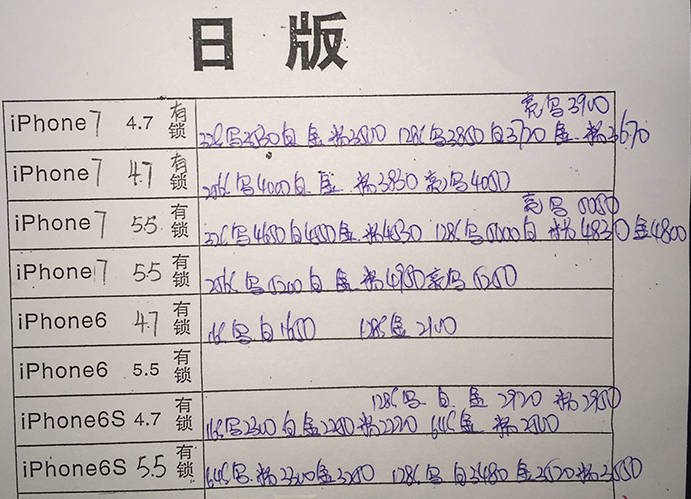 日版
亮乌3900
iPhone7 4.7 有锁 32G乌3530白 金 粉3500 128G乌3850白3720 金 粉3670
iPhone7 4.7 有锁 256G乌4000白 金 粉3830 亮乌4050
亮乌 5050
iPhone7 5.5 有锁 32G乌4650白4550金 粉4530 128G乌5000白 粉4830金4800
iPhone7 5.5 有锁 256G乌5200白 金 粉4950亮乌5250
iPhone6 4.7 有锁 16G乌白1650 128G金2100
iPhone6 5.5 有锁
128G乌 白 金 2920 粉2950
iPhone6S 4.7 有锁 16G乌2300白金2250粉2220 64G金 粉
iPhone6S 5.5 有锁 64G乌 粉 金 128G乌白3480金3520粉3550